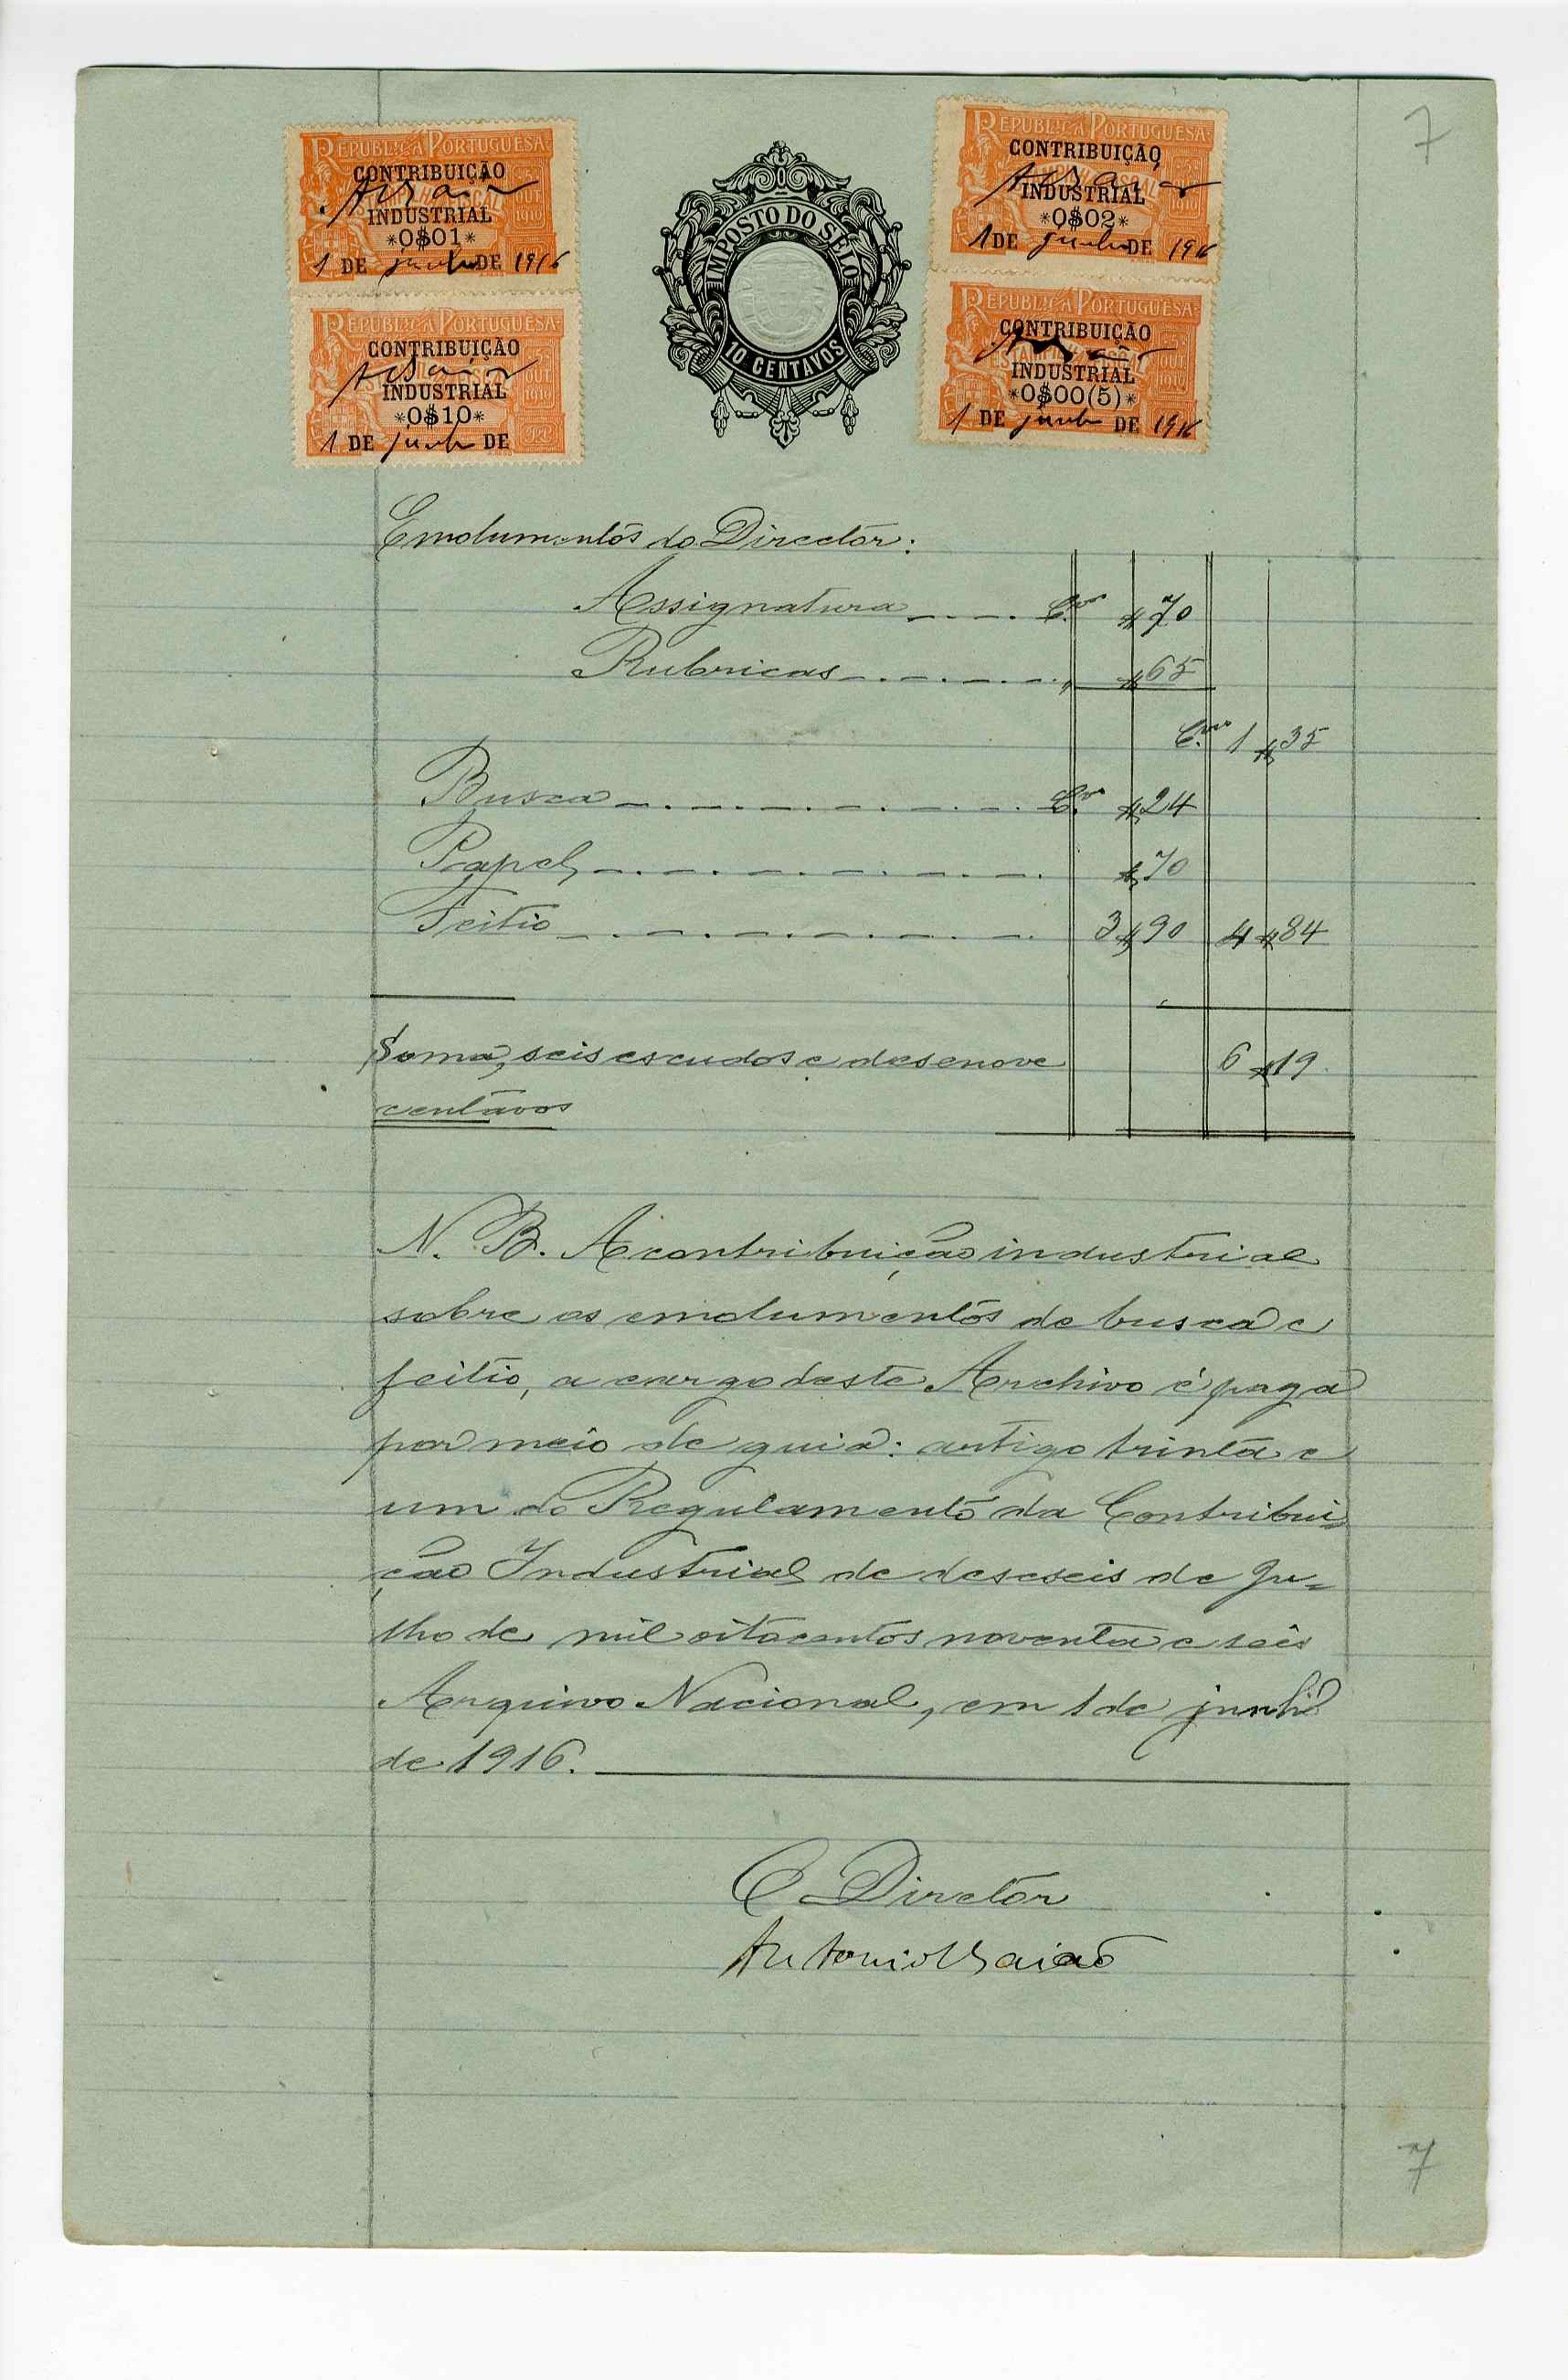 7
REPUBLICA PORTUGUESA
CONTRIBUIÇÃO
INDUSTRIAL
*0$01*
1 DE junho DE 1916
REPUBLICA PORTUGUESA
CONTRIBUIÇÃO
INDUSTRIAL
*0$10*
1 DE junho DE
IMPOSTO DO SÊLO
10 CENTAVOS
REPUBLICA PORTUGUESA
CONTRIBUIÇÃO
INDUSTRIAL
*0$02*
1 DE junho DE 1916
REPUBLICA PORTUGUESA
CONTRIBUIÇÃO
INDUSTRIAL
*0$00(5)*
1 DE junho DE 1916
Emolumentos do Director:
Assignatura C.vos $70
Rubricas $65
C.vos 1$35
Busca C.vos $24
Papel $70
Feitio 3$90 4$84
Soma, seis escudos e desenove 6$19
centavos
N. B. A contribuição industrial
sobre os emolumentos de busca e
feitio, a cargo deste Archivo é paga
por meio de guia: artigo trinta e
um do Regulamento da Contribui-
ção Industrial de deseseis de Ju=
lho de mil oitocentos noventa e seis
Arquivo Nacional, em 1 de junho
de 1916.
O Director
Antonio Baião
7